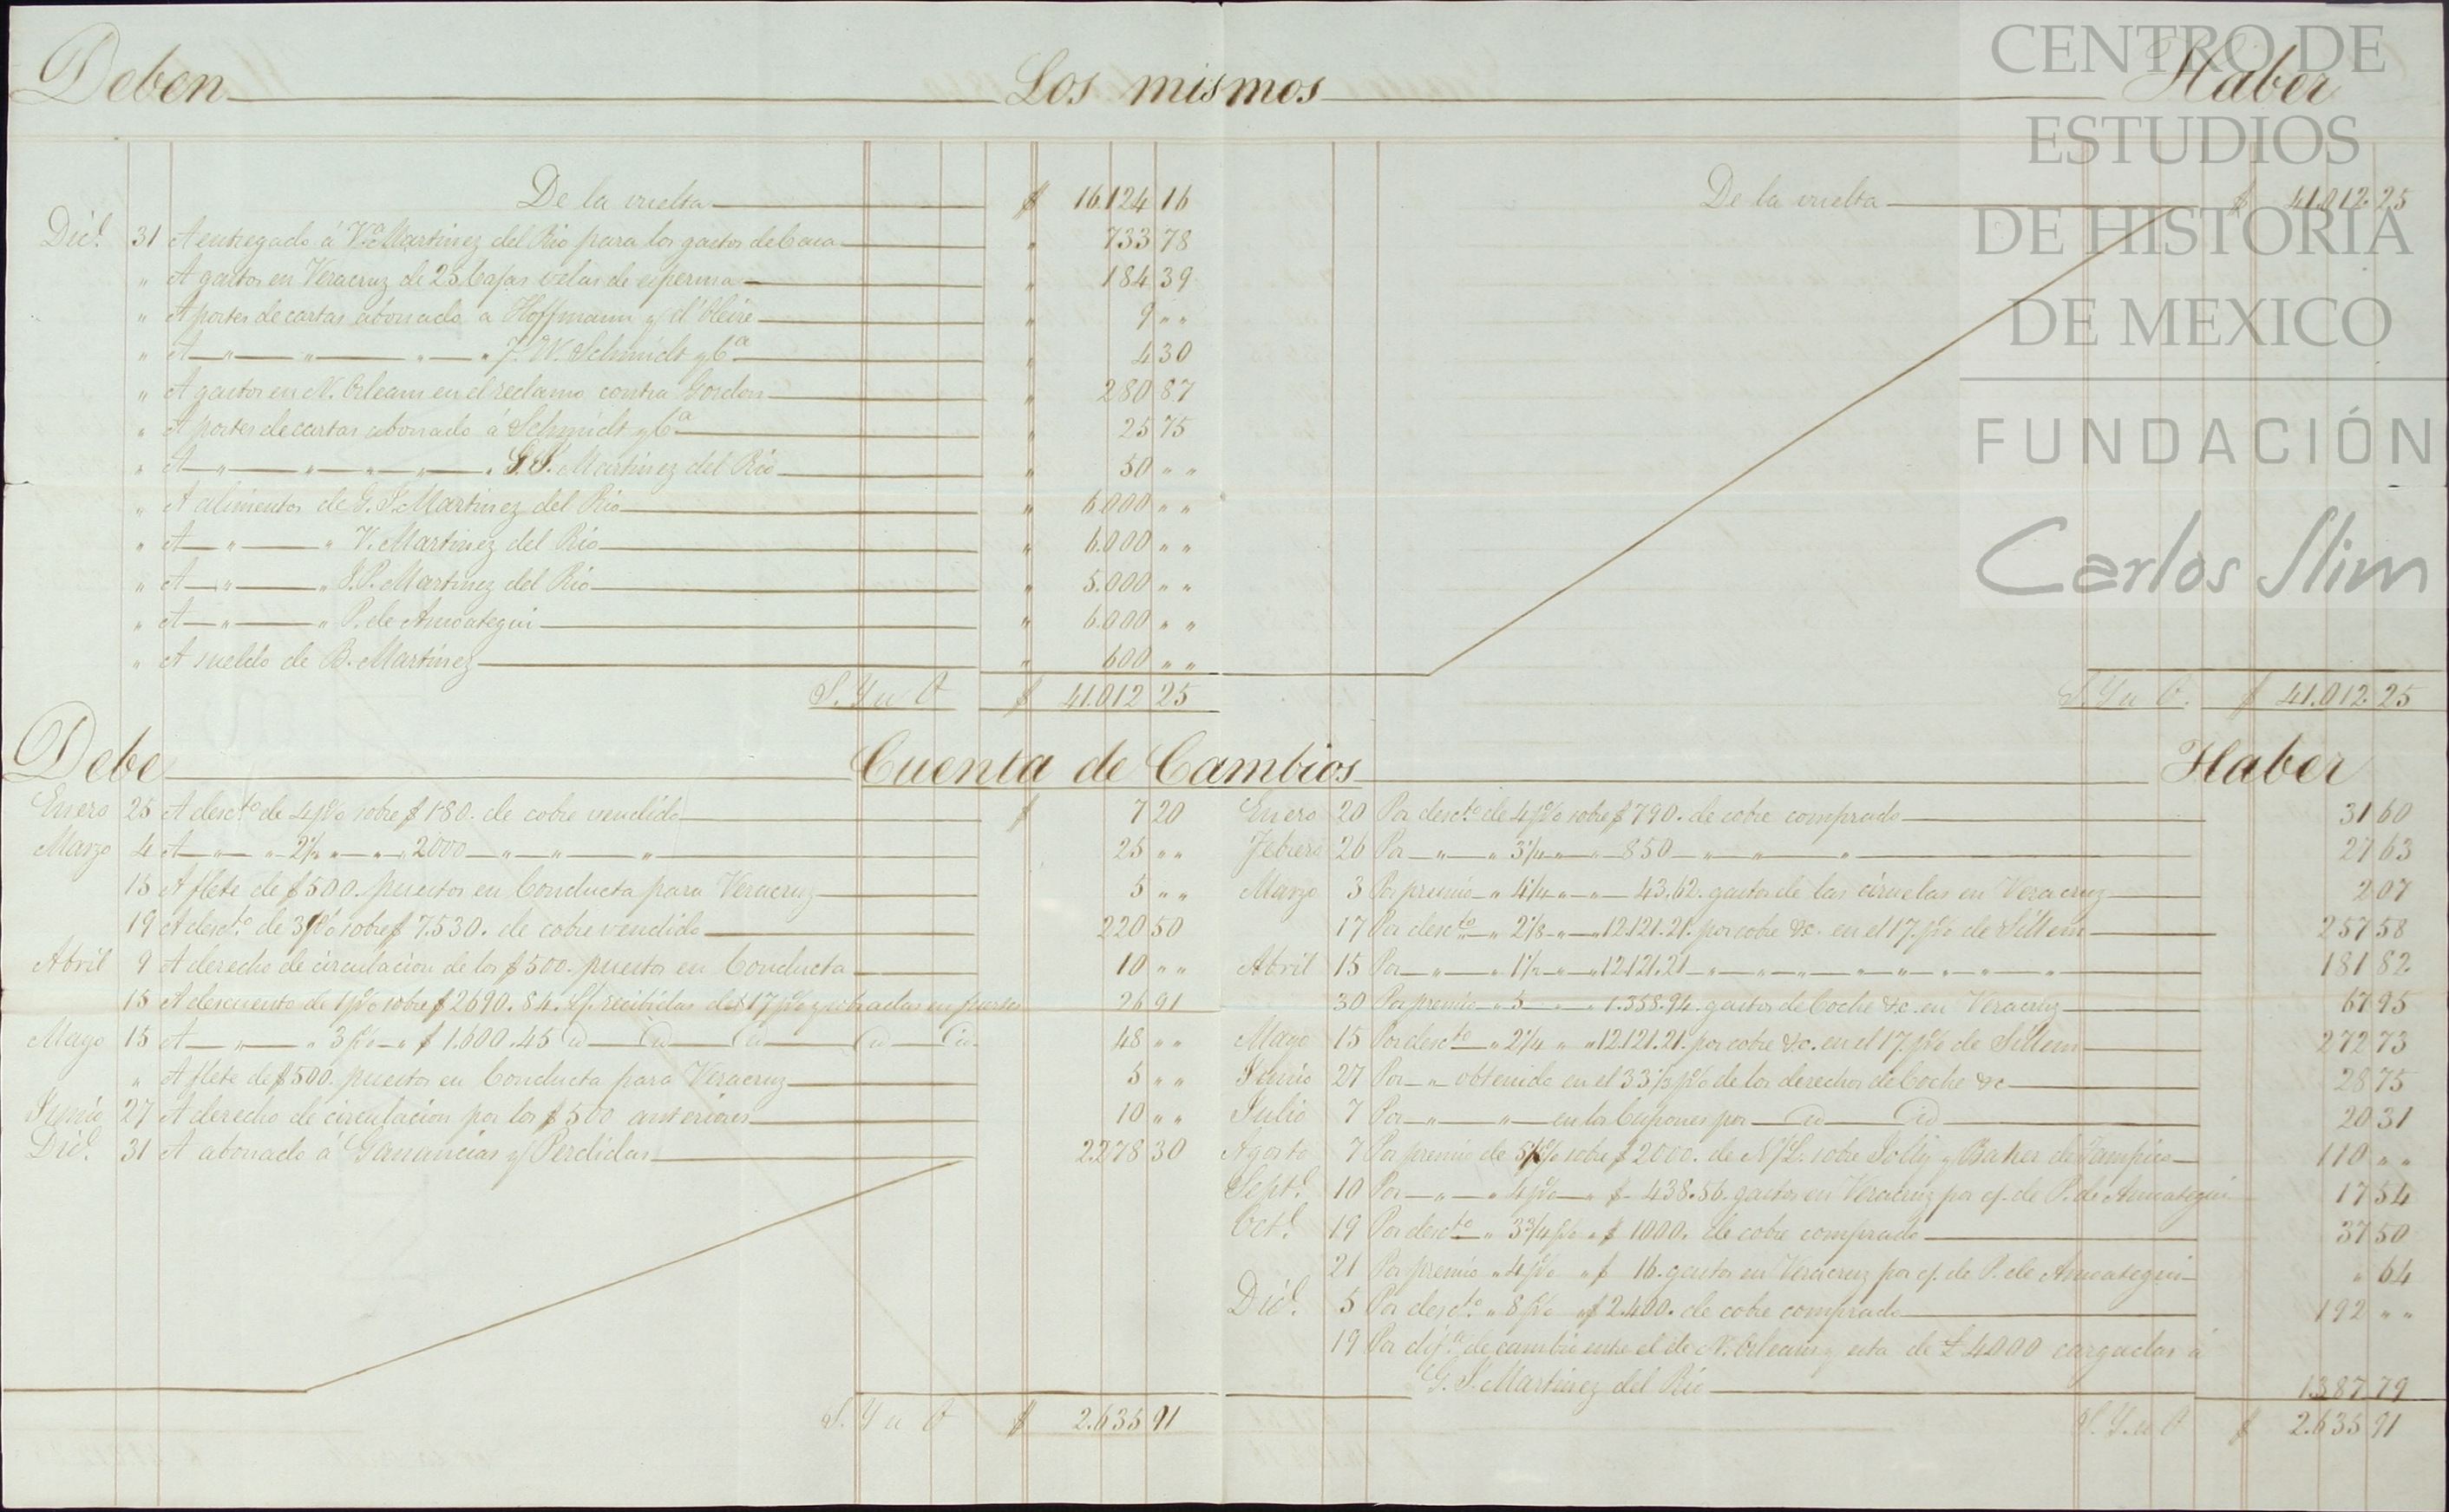 Deben Los mismos Haber
De la vuelta $ 16.124 16
Dic.e 31 A entregado á V.a Martinez del Rio para los gastos de Casa " 733 78
" A gastos en Veracruz de 25 Cajas velas de esperma " 184 39
" A portes de cartas abonado a Hoffmann y d'Oleire " 9 " "
" A " " " " J. W. Schmidt y C.a " 4 30
" A gastos en N. Orleans en el reclamo contra Gordon " 280 87
" A portes de cartas abonado á Schmidt y C.a " 25 75
" A " " " " " G. J. Martinez del Rio " 50 " "
" A alimentos de G. J. Martinez del Rio " 6.000 " "
" A " " V. Martinez del Rio " 6.000 " "
" A " " J. P. Martinez del Rio " 5.000 " "
" A " " P. de Ansoategui " 6.000 " "
" A sueldo de B. Martinez " 600 " "
S. Y u O $ 41.012 25
De la vuelta $ 41.012 25
S. Y u O. $ 41.012 25
Debe Cuenta de Cambios Haber
Enero 25 A desc.to de 4 p% sobre $ 180. de cobre vendido $ 7 20
Marzo 4 A " " " " " 2000 " " " 25 " "
15 A flete de $ 500. puestos en Conducta para Veracruz 5 " "
19 A desc.to de 3 p% sobre $ 7.530. de cobre vendido 220 50
Abril 9 A derecho de circulacion de los $ 500. puestos en Conducta 10 " "
15 A descuento de 1 p% sobre $ 2690.84. recibidas del 17 p% y en pesos 26 91
Mayo 15 A " " 3 p% " $ 1.600.45 id id id id id 48 " "
" A flete de $ 500. puestos en Conducta para Veracruz 5 " "
Junio 27 A derecho de circulacion por los $ 500 anteriores 10 " "
Dic.e 31 A abonado á Ganancias y Perdidas 2.278 30
S. Y u O $ 2.635 91
Enero 20 Por desc.to de 4 p% sobre $ 790. de cobre comprado 31 60
Febrero 26 Por " " 3 1/4 " " 850 " " " 27 63
Marzo 3 Por premio " 4 3/4 " " 43.62. gastos de las ciruelas en Veracruz 2 07
17 Por desc.to " 2 1/8 " " 12.121.21. por cobre &c. en el 17 p% de Sillem 257 58
Abril 15 Por " " 1 1/2 " " 12.121.21 " " " " " " " " 181 82
30 Por premio " 5 " " 1.358.94. gastos de Coche &c. en Veracruz 67 95
Mayo 15 Por desc.to " 2 1/4 " " 12.121.21. por cobre &c. en el 17 p% de Sillem 272 73
Junio 27 Por " obtenido en el 33 1/3 p% de los derechos de Coche &c 28 75
Julio 7 Por " " en los Cupones por id id 20 31
Agosto 7 Por premio de 5 1/2 p% sobre $ 2000. de N/L. sobre Jolly y Baker de Tampico 110 " "
Sept.e 10 Por " " 4 p% " $ 438.56. gastos en Veracruz por c/. de P. de Ansoategui 17 54
Oct.e 19 Por desc.to " 3 3/4 p% " $ 1000. de cobre comprado 37 50
21 Por premio " 4 p% " $ 16. gastos en Veracruz por c/. de P. de Ansoategui " 64
Dic.e 5 Por desc.to " 8 p% " $ 2.400. de cobre comprado 192 " "
19 Por dif.a de cambio entre el de N. Orleans y esta de £ 4000 cargadas á
G. J. Martinez del Rio 1.387 79
S. Y. u O $ 2.635 91
CENTRO DE
ESTUDIOS
DE HISTORIA
DE MEXICO
FUNDACIÓN
Carlos Slim